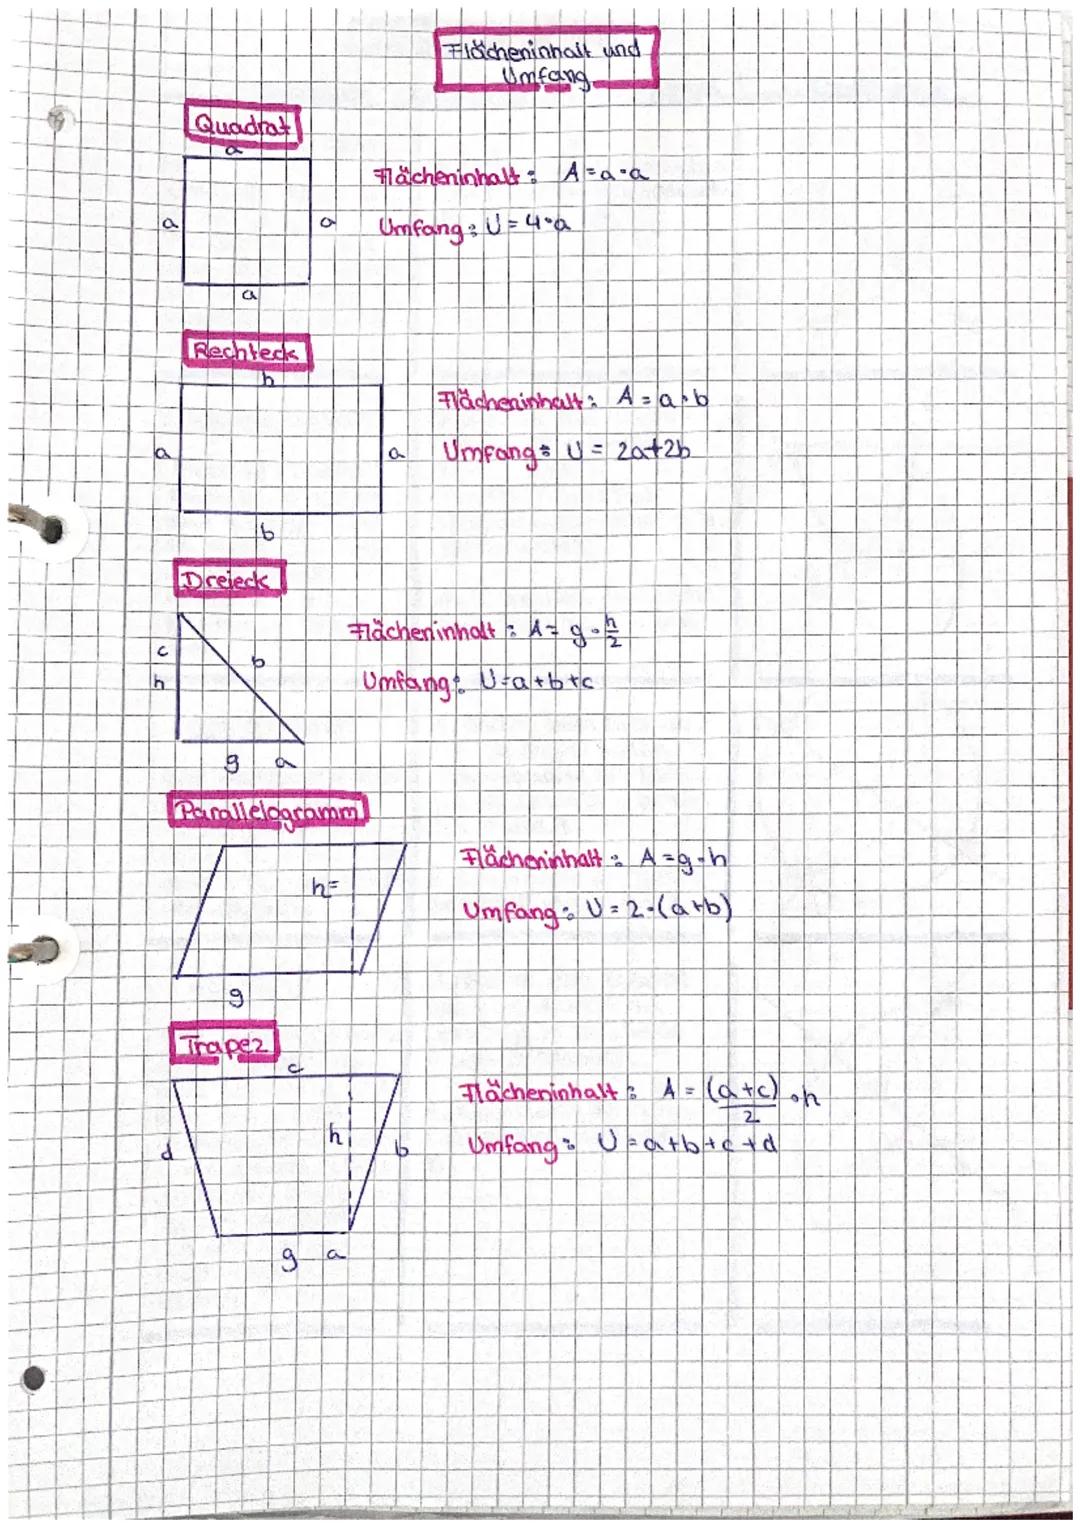 Flächeninhalt und
Umfang
Quadrat
a
Flächeninhalt: A = a·a
a
a
Umfang: U = 4·a
a
Rechteck
b
Flächeninhalt: A = a·b
a
a
Umfang: U = 2a+2b
b
Dreieck
Flächeninhalt: A = g·h/2
c
b
h
Umfang: U=a+b+c
g a
Parallelogramm
Flächeninhalt: A = g·h
h=
Umfang: U = 2·(a+b)
g
Trapez
c
Flächeninhalt: A = (a+c)/2 ·h
h
d
b
Umfang: U = a+b+c+d
g a